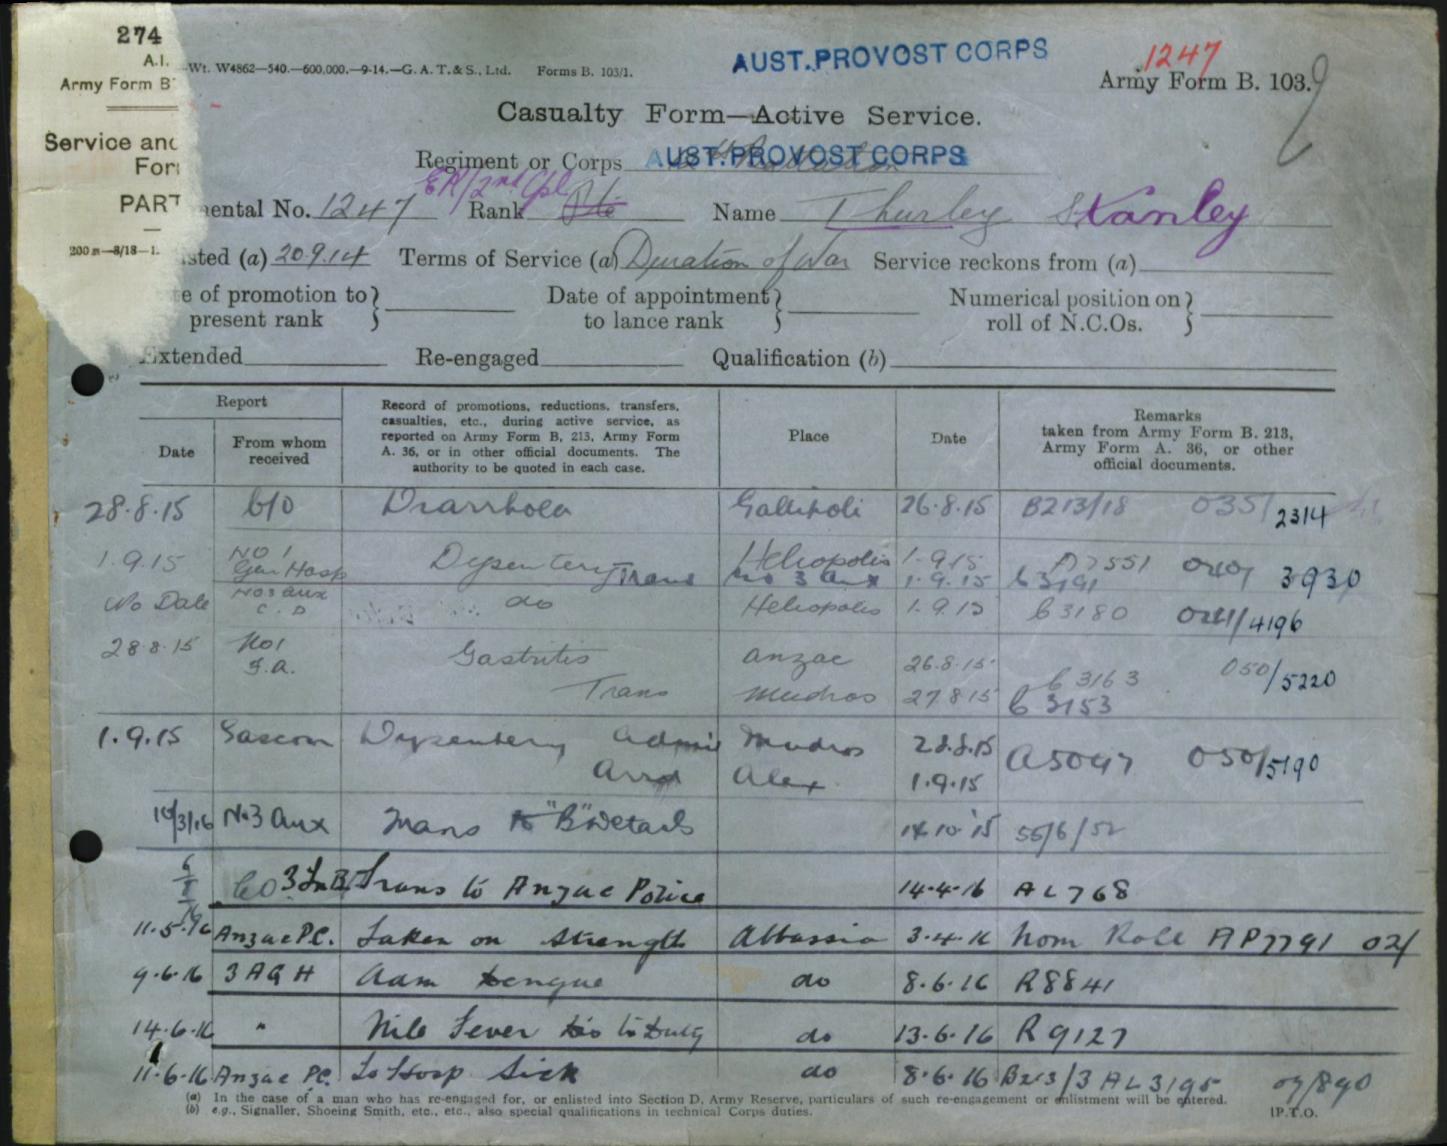 274
A.I.
Army Form B
Service and
Form
PART
200 m—8/18—1.
Wt. W4862—540.—600,000.—9-14.—G. A. T. & S., Ltd. Forms B. 103/1.
AUST. PROVOST CORPS
1247
Army Form B. 103.
Casualty Form—Active Service.
Regiment or Corps AUST. PROVOST CORPS
ER/2nd Cpl
mental No. 1247 Rank Pte Name Thurley Stanley
isted (a) 20.9.14 Terms of Service (a) Duration of War Service reckons from (a)
te of promotion to present rank } Date of appointment to lance rank } Numerical position on roll of N.C.Os. }
Extended Re-engaged Qualification (b)
Report
Date From whom received Record of promotions, reductions, transfers, casualties, etc., during active service, as reported on Army Form B, 213, Army Form A. 36, or in other official documents. The authority to be quoted in each case. Place Date Remarks taken from Army Form B. 213, Army Form A. 36, or other official documents.
28.8.15 C/O Diarrhoea Gallipoli 26.8.15 B213/18 035/2314
1.9.15 No 1 Gen Hosp Dysentery Heliopolis 1.9.15 D7551 3930
Trans No 3 Aux 1.9.15 B3191
No Date No 3 Aux C.D do Heliopolis 1.9.15 B3180 /4196
28.8.15 No 1 F.A. Gastritis Anzac 26.8.15 B3163 050/5220
Trans Mudros 27.8.15 B3153
1.9.15 Gascon Dysentery Admd Mudros 28.8.15 A5047 050/5190
Arrd Alex 1.9.15
10/3/16 No3 Aux Trans to "B" Details 14.10.15 55/6/52
CO 3 L.H.B. Trans to Anzac Police 14.4.16 AL768
11.5.16 Anzac P.C. Taken on Strength Abbassia 3.4.16 Nom Roll AP7791
9.6.16 3 AGH Adm Dengue do 8.6.16 R8841
14.6.16 " Nile Fever Dis to Duty do 13.6.16 R9127
11.6.16 Anzac P.C. To Hosp Sick do 8.6.16 B213/3 AL3195 /890
(a) In the case of a man who has re-engaged for, or enlisted into Section D, Army Reserve, particulars of such re-engagement or enlistment will be entered.
(b) e.g., Signaller, Shoeing Smith, etc., etc., also special qualifications in technical Corps duties. [P.T.O.